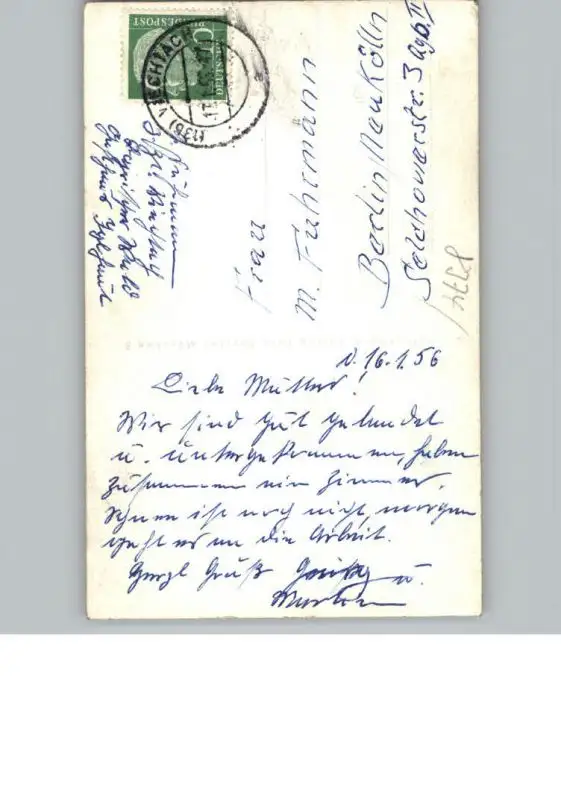 DEUTSCHE
BUNDESPOST
10
(13b) VIECHTACH
17.
Frau
M. Fuhrmann
Berlin/Neukölln
Selchowerstr. 3 Agb. II
d. 16.1.56
Liebe Mutter!
Wir sind gut gelandet
u. untergekommen, haben
zusammen ein Zimmer.
Schnee ist noch nicht, morgen
geht es an die Arbeit.
Herzl. Gruß u.